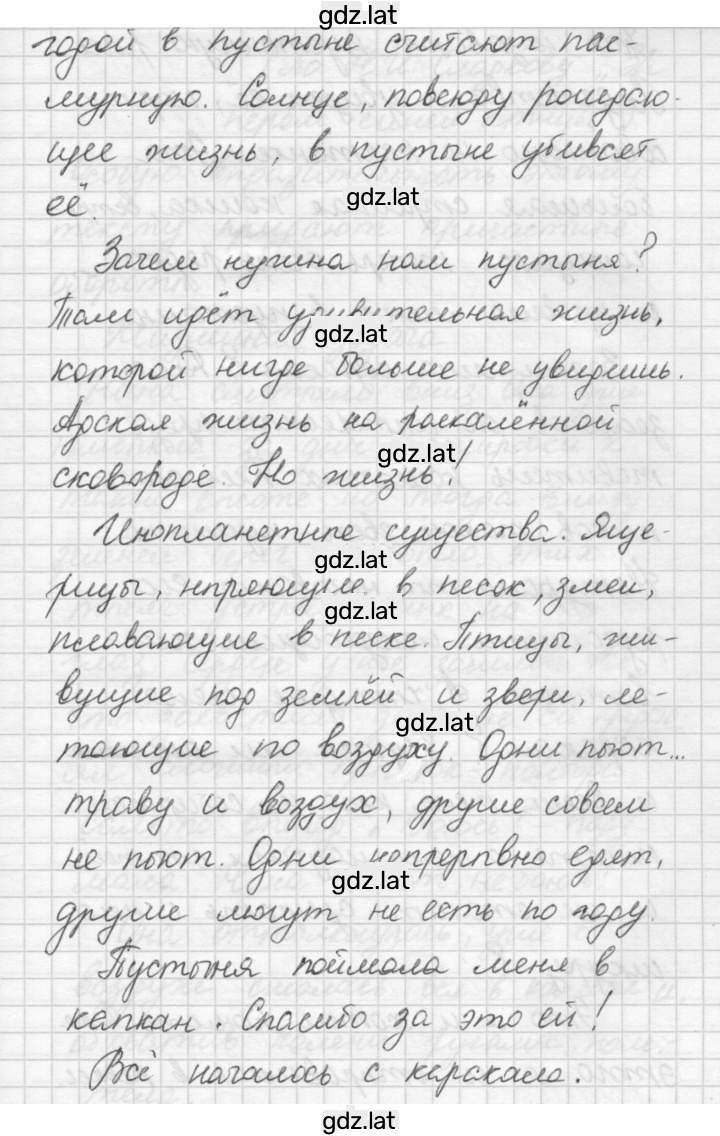 gdz.lat
годой в пустыне считают пас-
мурную. Солнце, повсюду рождаю-
щее жизнь, в пустыне убивает
её.
gdz.lat
Зачем нужна нам пустыня?
Там идёт удивительная жизнь,
gdz.lat
которой нигде больше не увидишь.
Адская жизнь на раскалённой
gdz.lat
сковороде. Но жизнь!
Инопланетные существа. Яще-
gdz.lat
рицы, ныряющие в песок, змеи,
gdz.lat
плавающие в песке. Птицы, жи-
вущие под землёй и звери, ле-
gdz.lat
тающие по воздуху. Одни пьют...
траву и воздух, другие совсем
не пьют. Одни непрерывно едят,
gdz.lat
другие могут не есть по году.
Пустыня поймала меня в
капкан. Спасибо за это ей!
Всё началось с каракала.
gdz.lat